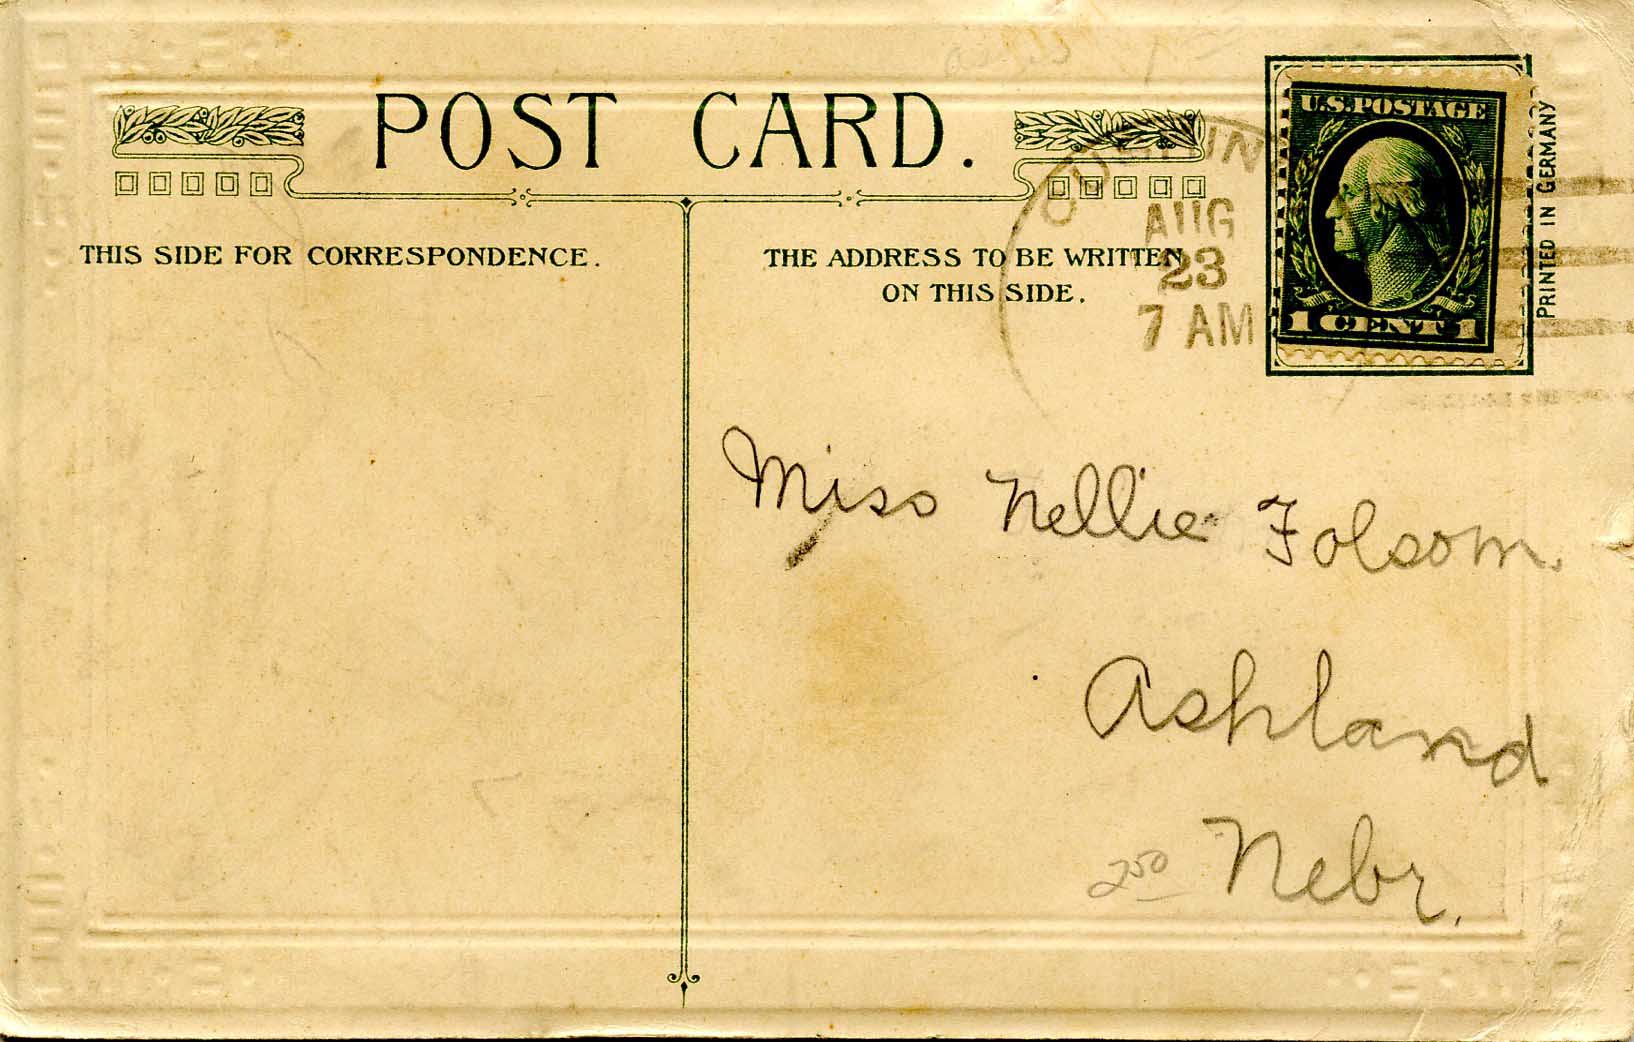 POST CARD.
THIS SIDE FOR CORRESPONDENCE.
THE ADDRESS TO BE WRITTEN
ON THIS SIDE.
AUG
23
7 AM
U.S. POSTAGE
1 CENT 1
PRINTED IN GERMANY
Miss Nellie Folsom.
Ashland
Nebr.
250